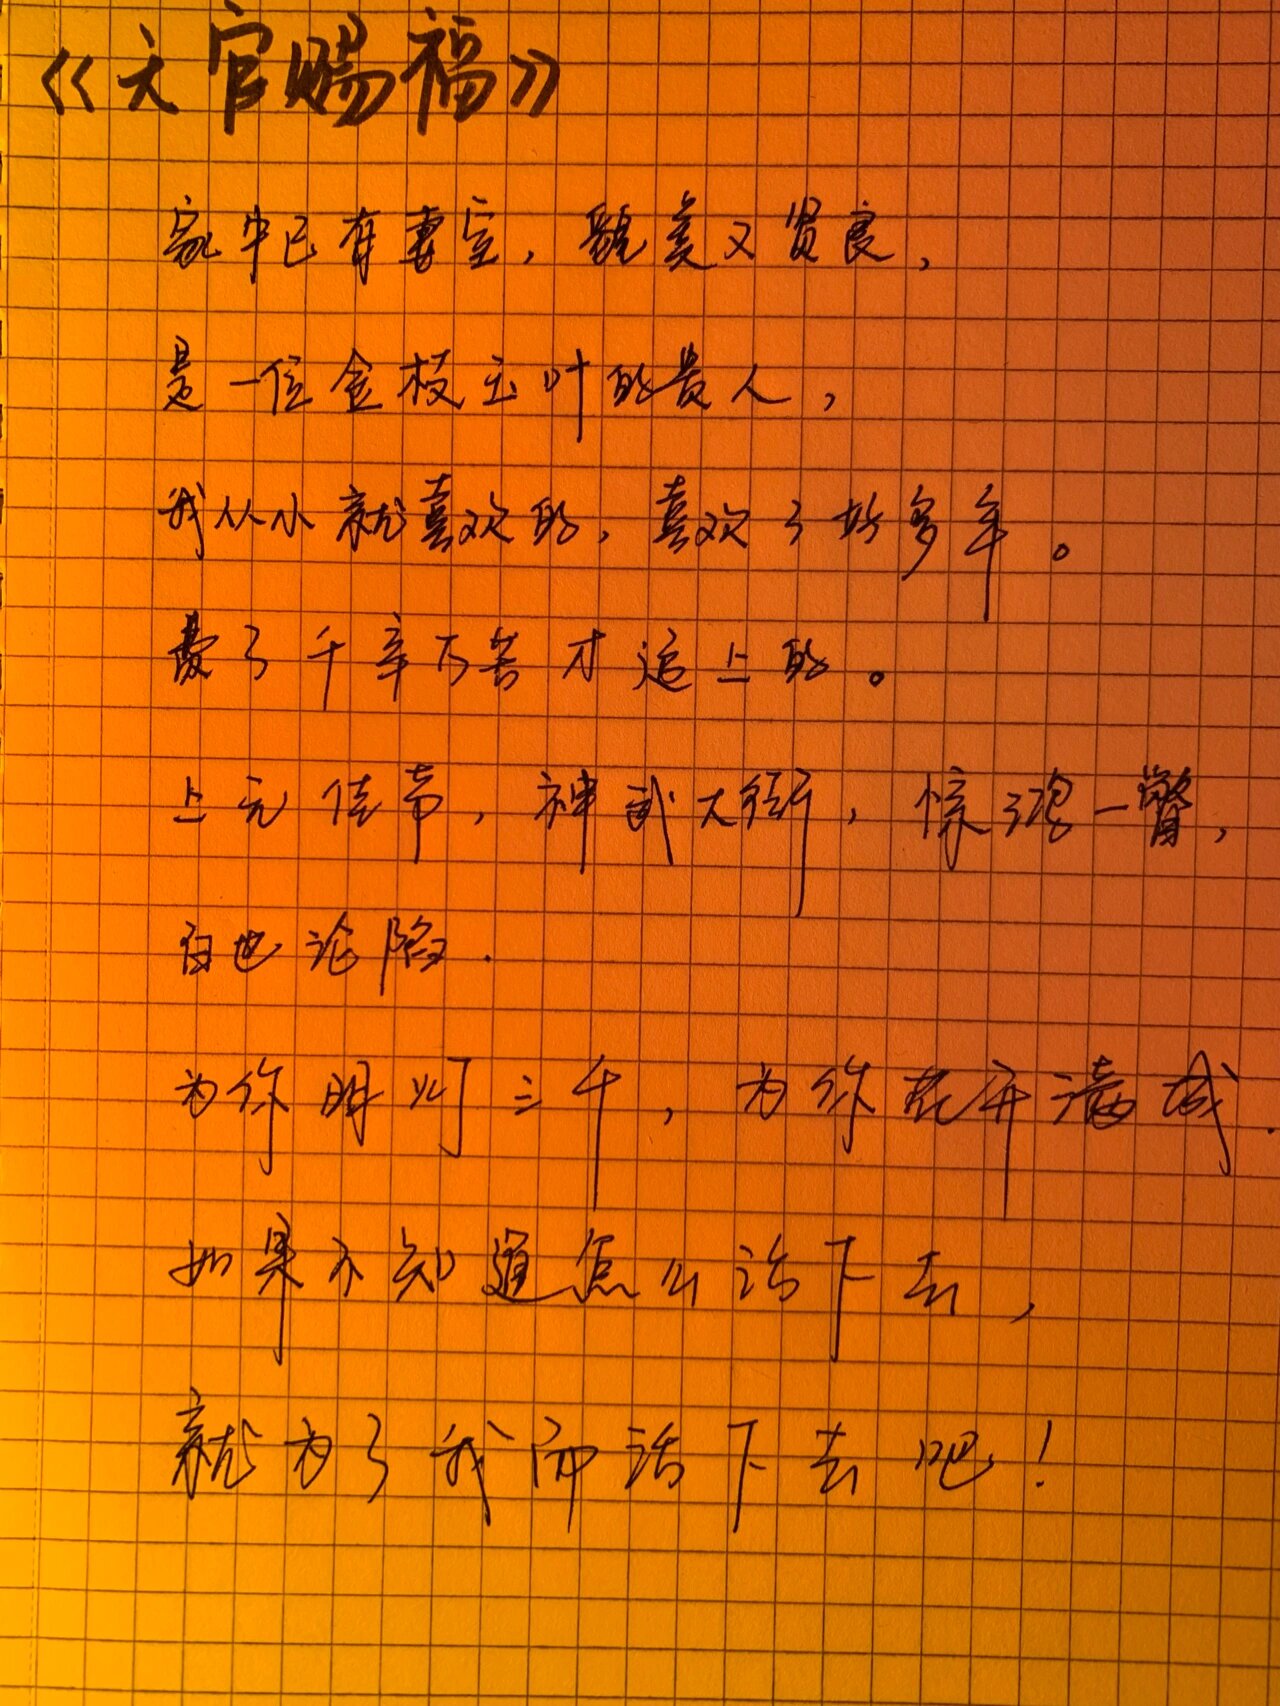 《天官赐福》
家中已有妻室，貌美又贤良，
是一位金枝玉叶的贵人，
我从小就喜欢的，喜欢了好多年。
费了千辛万苦才追上的。
上元佳节，神武大街，惊鸿一瞥，
百世沦陷.
为你明灯三千，为你花开满城.
如果不知道怎么活下去，
就为了我而活下去吧！